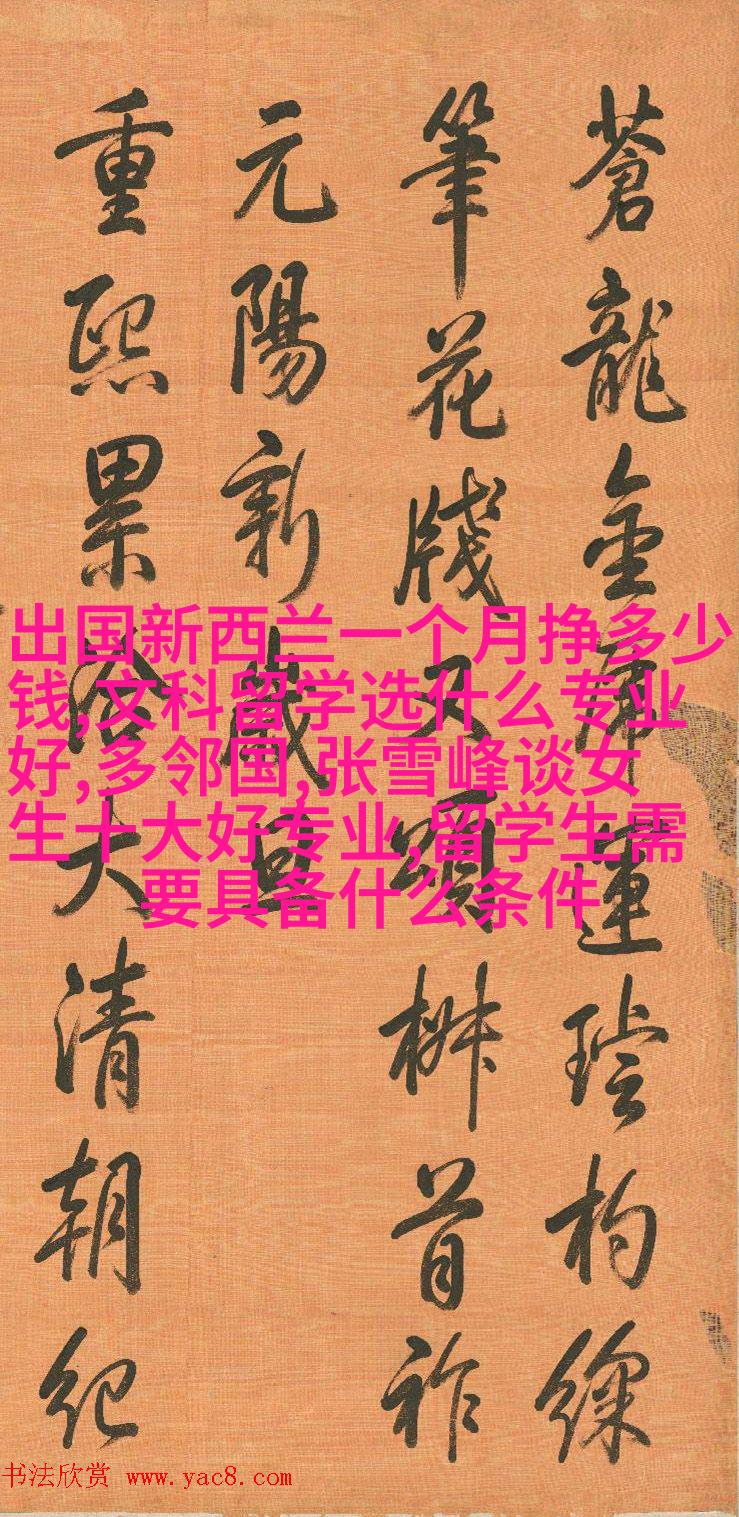 蒼龍金運璿杓綵
筆花牋又頌椒首祚
元陽新歲旦
重熙累洽大清朝紀
出国新西兰一个月挣多少
钱,文科留学选什么专业
好,多邻国,张雪峰谈女
生十大好专业,留学生需
要具备什么条件
书法欣赏 www.yac8.com